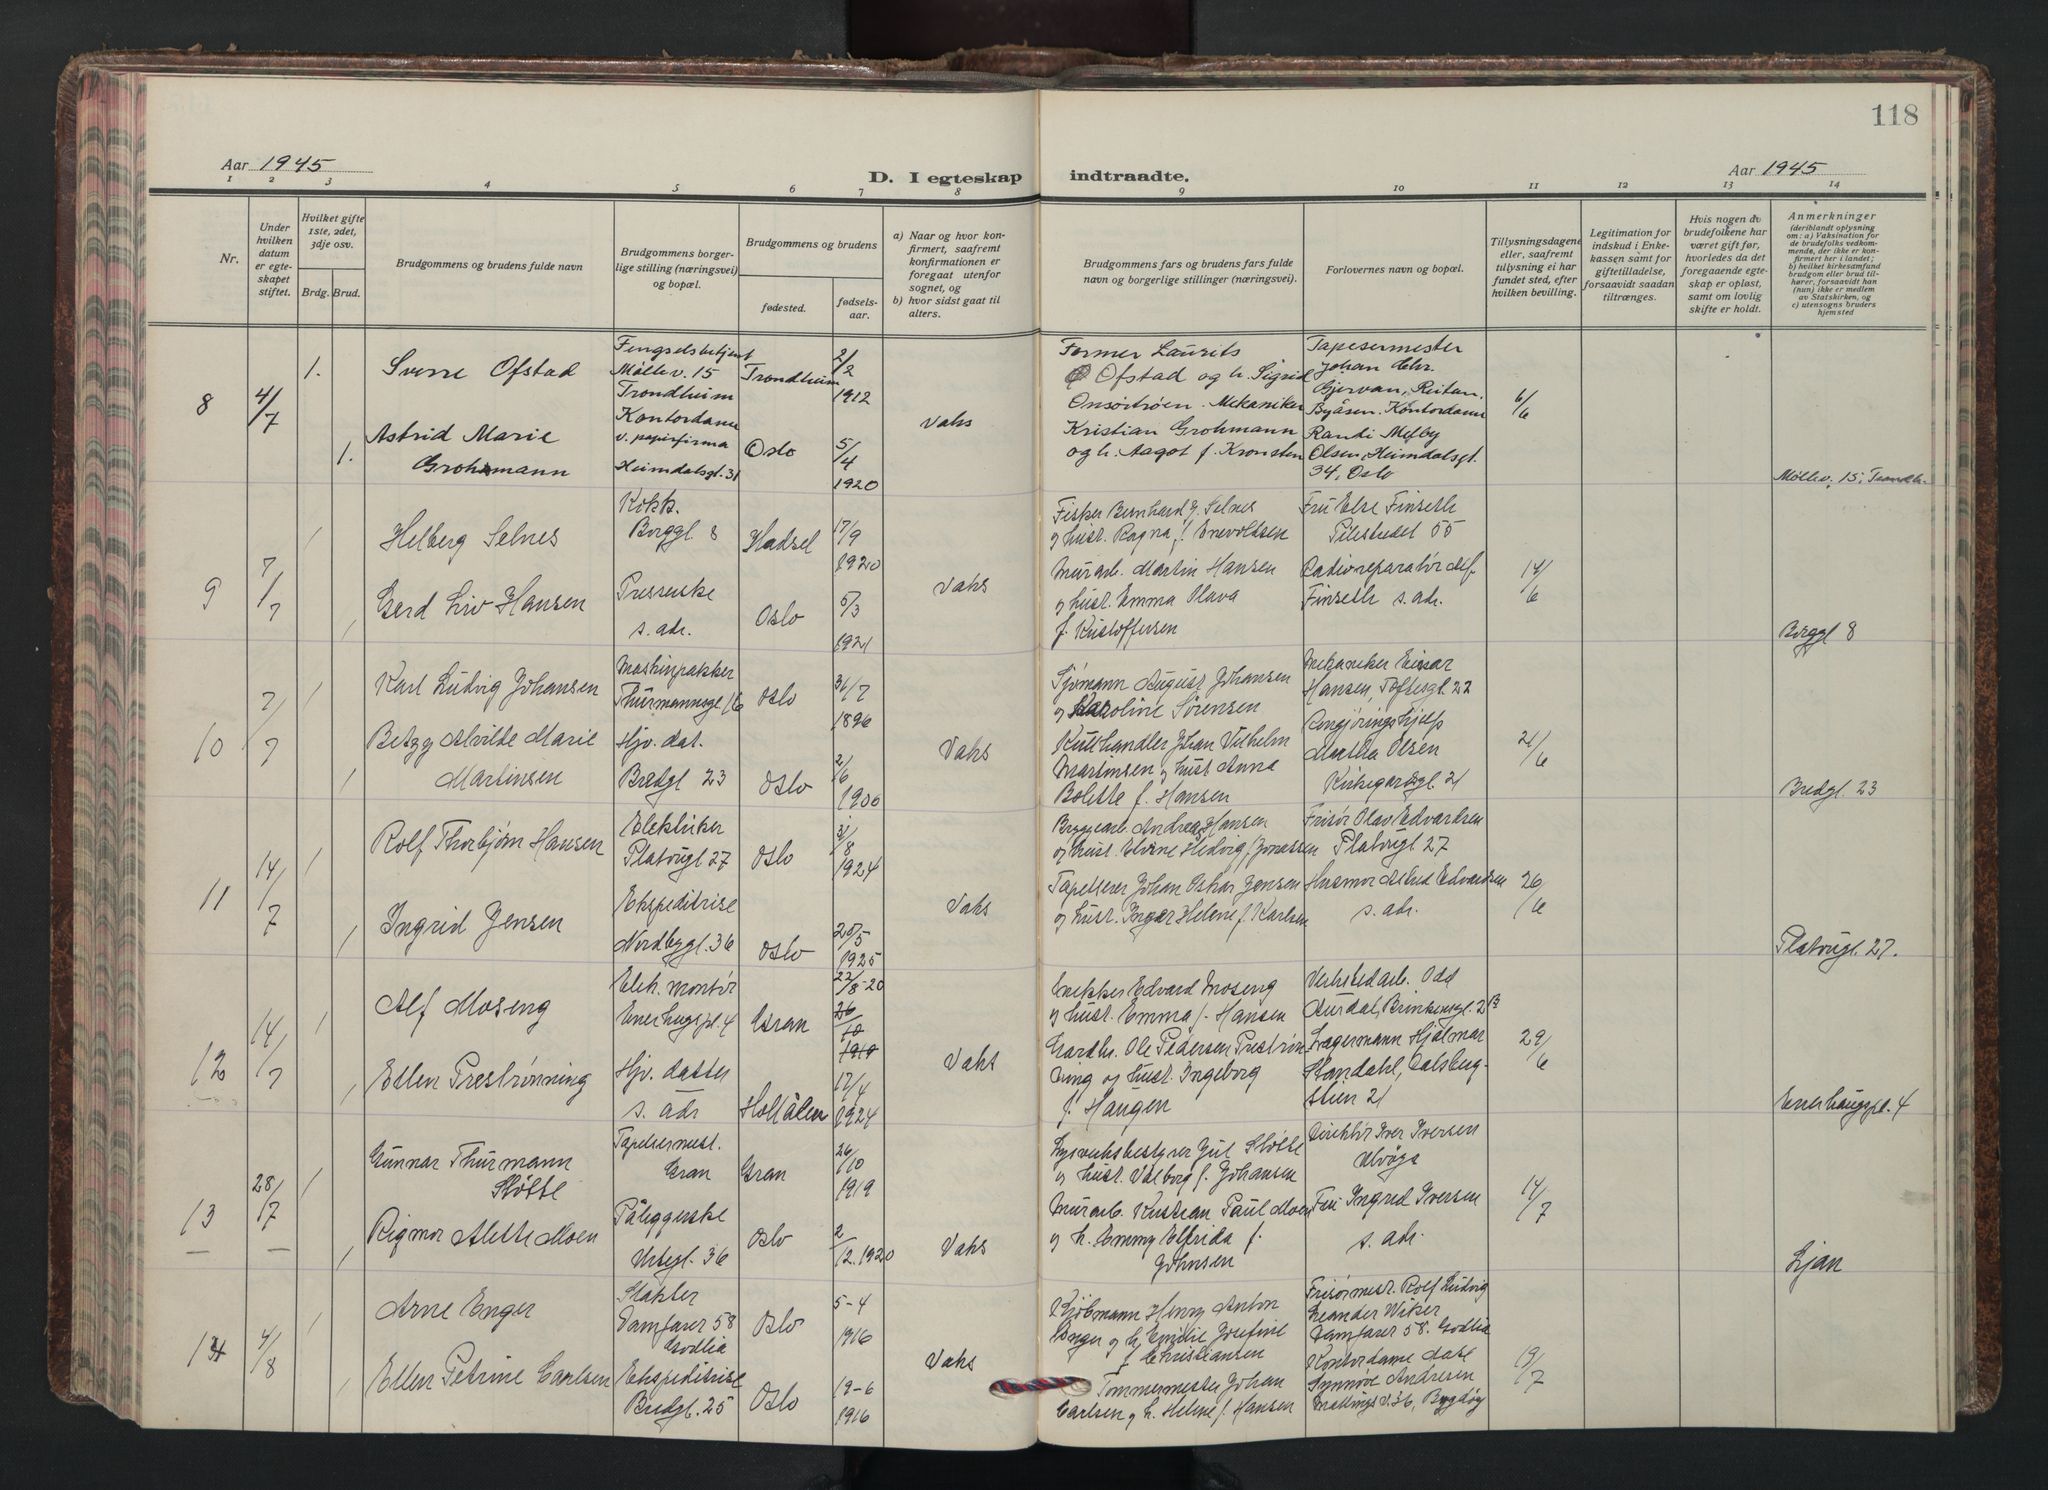 118
Aar 1945
D. I egteskap indtraadte.
Aar 1945
1 2 3 4 5 6 7 8 9 10 11 12 13 14
Nr.
Under hvilken datum er egteskapet stiftet.
Hvilket gifte 1ste, 2det, 3dje osv.
Brdg. Brud.
Brudgommens og brudens fulde navn
Brudgommens borgerlige stilling (næringsvei) og bopæl.
Brudgommens og brudens
fødested.
fødselsaar.
a) Naar og hvor konfirmert, saafremt konfirmationen er foregaat utenfor sognet, og
b) hvor sidst gaat til alters.
Brudgommens fars og brudens fars fulde navn og borgerlige stillinger (næringsvei).
Forlovernes navn og bopæl.
Tillysningsdagene eller, saafremt tillysning ei har fundet sted, efter hvilken bevilling.
Legitimation for indskud i Enkekassen samt for giftetilladelse, forsaavidt saadan tiltrænges.
Hvis nogen av brudefolkene har været gift før, hvorledes da det foregaaende egteskap er opløst, samt om lovlig skifte er holdt.
Anmerkninger
(deriblandt oplysning om: a) Vaksination for de brudefolks vedkommende, der ikke er konfirmert her i landet;
b) hvilket kirkesamfund brudgom eller brud tilhører, forsaavidt han (hun) ikke er medlem av Statskirken, og
c) utensogns bruders hjemsted
8
4/7
1.
Sverre Ofstad
Fengselsbetjent
Møllev. 15
Trondheim
Trondheim
2/2
1912
1.
Astrid Marie
Grohmann
Kontordame
v. papirfirma
Heimdalsgt. 31
Oslo
5/4
1920
Vaks
Former Laurits
Ofstad og h. Sigrid
Onsöströen. Mekaniker
Kristian Grohmann
og h. Aagot f. Kronsten
Tapesermester
Johan Chr.
Gjervan, Reitan,
Byåsen. Kontordame
Randi Melby
Olsen, Heimdalsgt.
34, Oslo
6/6
Møllev. 15, Trondh.
9
7/7
Helberg Selnes
Kokk.
Borggt 8
Hadsel
17/9
1920
Gerd Liv Hansen
Presserske
s. adr.
Oslo
5/3
1921
Vaks
Fisker Bernhard J. Selnes
og hust. Ragna f. Enevoldsen
Murarb. Martin Hansen
og hust. Emma Olava
f. Kristoffersen
Fru Else Finseth
Pilestredet 55
Radioreparatör Alf
Finseth s. adr.
14/6
Borggt 8
10
7/7
Karl Ludvig Johansen
Maskinpakker
Thurmannsgt 16
Oslo
31/7
1896
Betzy Alvilde Marie
Martinsen
Hjv. dat.
Bredgt 23
Oslo
2/6
1900
Vaks
Sjømann August Johansen
og Karoline Sørensen
Kullhandler Johan Vilhelm
Martinsen og hust Anna
Bolette f. Hansen
Mekaniker Einar
Hansen, Toftesgt. 22
Rengjøringshjelp
Martha Olsen
Kirkegårdsgt. 21
21/6
Bredgt. 23
11
14/7
Rolf Thorbjørn Hansen
Elektriker
Platougt 27
Oslo
31/8
1924
Ingrid Jensen
Ekspeditrise
Nordbygt. 36
Oslo
25/5
1925
Vaks
Bryggearb Andreas Hansen
og hust. Elvine Hedvig f. Jonassen
Tapetserer Johan Oskar Jensen
og hust. Inger Helene f. Karlsen
Frisør Olav Edvardsen
Platougt 27
Husmor Astrid Edvardsen
s. adr.
26/6
Platougt. 27.
12
14/7
Alf Moseng
Elek. montør
Enerhaugspl. 4
Gran
22/8-20
26/10
1919
Ellen Prestrønning
Hjv. datter
s. adr
Holtålen
17/4
1924
Vaks
Snekker Edvard Moseng
og hust. Emma f. Hansen
Gardbr. Ole Pedersen Prestrøn-
ning og hust. Ingeborg
f. Haugen
Verkstedarb. Odd
Aurdal, Brinkensgt. 2B
Lagermann Hjalmar
Standahl, Dalsberg-
stien 21
29/6
Enerhaugspl. 4
13
28/7
Gunnar Thurmann
Sløtte
Tapetsermest.
Gran
Gran
26/10
1919
Rigmor Alette Moen
Påleggerske
Urtegt. 36
Oslo
2/12. 1920
Vaks
Lysverksbestyrer Jul Sløtte
og hust. Valborg f. Johansen
Murarb. Kristian Paul Moen
og h. Emmy Elfrida f.
Johnsen
Direktör Iver Iversen
Ulvöya
Fru Ingrid Iversen
s. adr.
14/7
Ljan
14
4/8
Arne Enger
Slakter
Damfaret 58
Godlia
Oslo
5-4
1916
Ellen Petrine Carlsen
Ekspeditrise
Bredgt. 25
Oslo
19-6
1916
Vaks
Kjøbmann Henry Anton
Enger og h. Emilie Josefine
f. Christiansen
Tømmermester Johan
Carlsen og h. Helene f. Hansen
Frisørmest. Rolf Ludvig
Leander Wiker
Damfaret 58. Godlia
Kontordame Aase
Synnöve Andresen
Mellings v. 36, Bygdøy
19/7